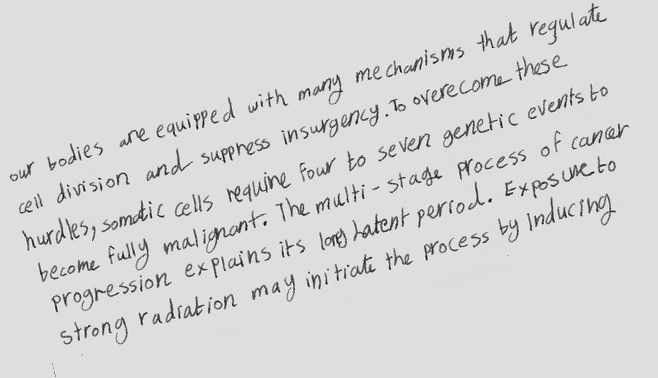 our bodies are equipped with many mechanisms that regulate
cell division and suppress insurgency. To overecome these
hurdles, somatic cells require four to seven genetic events to
become fully malignant. The multi-stage process of cancer
progression explains its long latent period. Exposure to
strong radiation may initiate the process by inducing